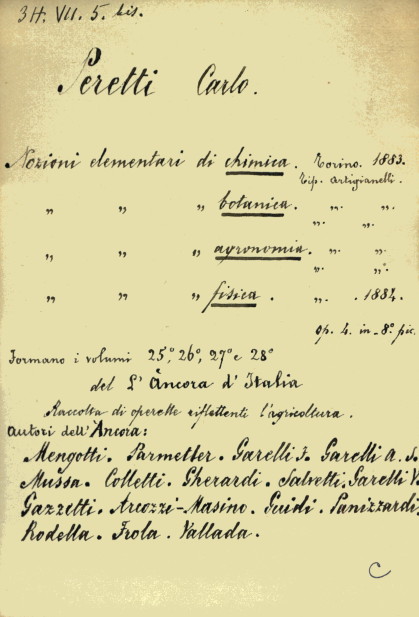 34. VII. 5. bis.
Peretti Carlo.
Nozioni elementari di chimica. Torino. 1883.
Tip. Artigianelli.
„ „ „ botanica. „. „.
„. „.
„ „ „ agronomia. „. „
„. „.
„ „ „ fisica. „. . 1884.
op. 4. in-8° pic.
Formano i volumi 25°, 26°, 27° e 28°
del L'Àncora d'Italia
Raccolta di operette riflettenti l'agricoltura.
Autori dell'Ancora:
Mengotti. Parmetler. Garelli F. Garelli A.
Mussa. Colletti. Gherardi. Salvetti. Garelli V
Gazzetti. Arcozzi-Masino. Guidi. Panizzardi
Rodella. Frola. Vallada.
C